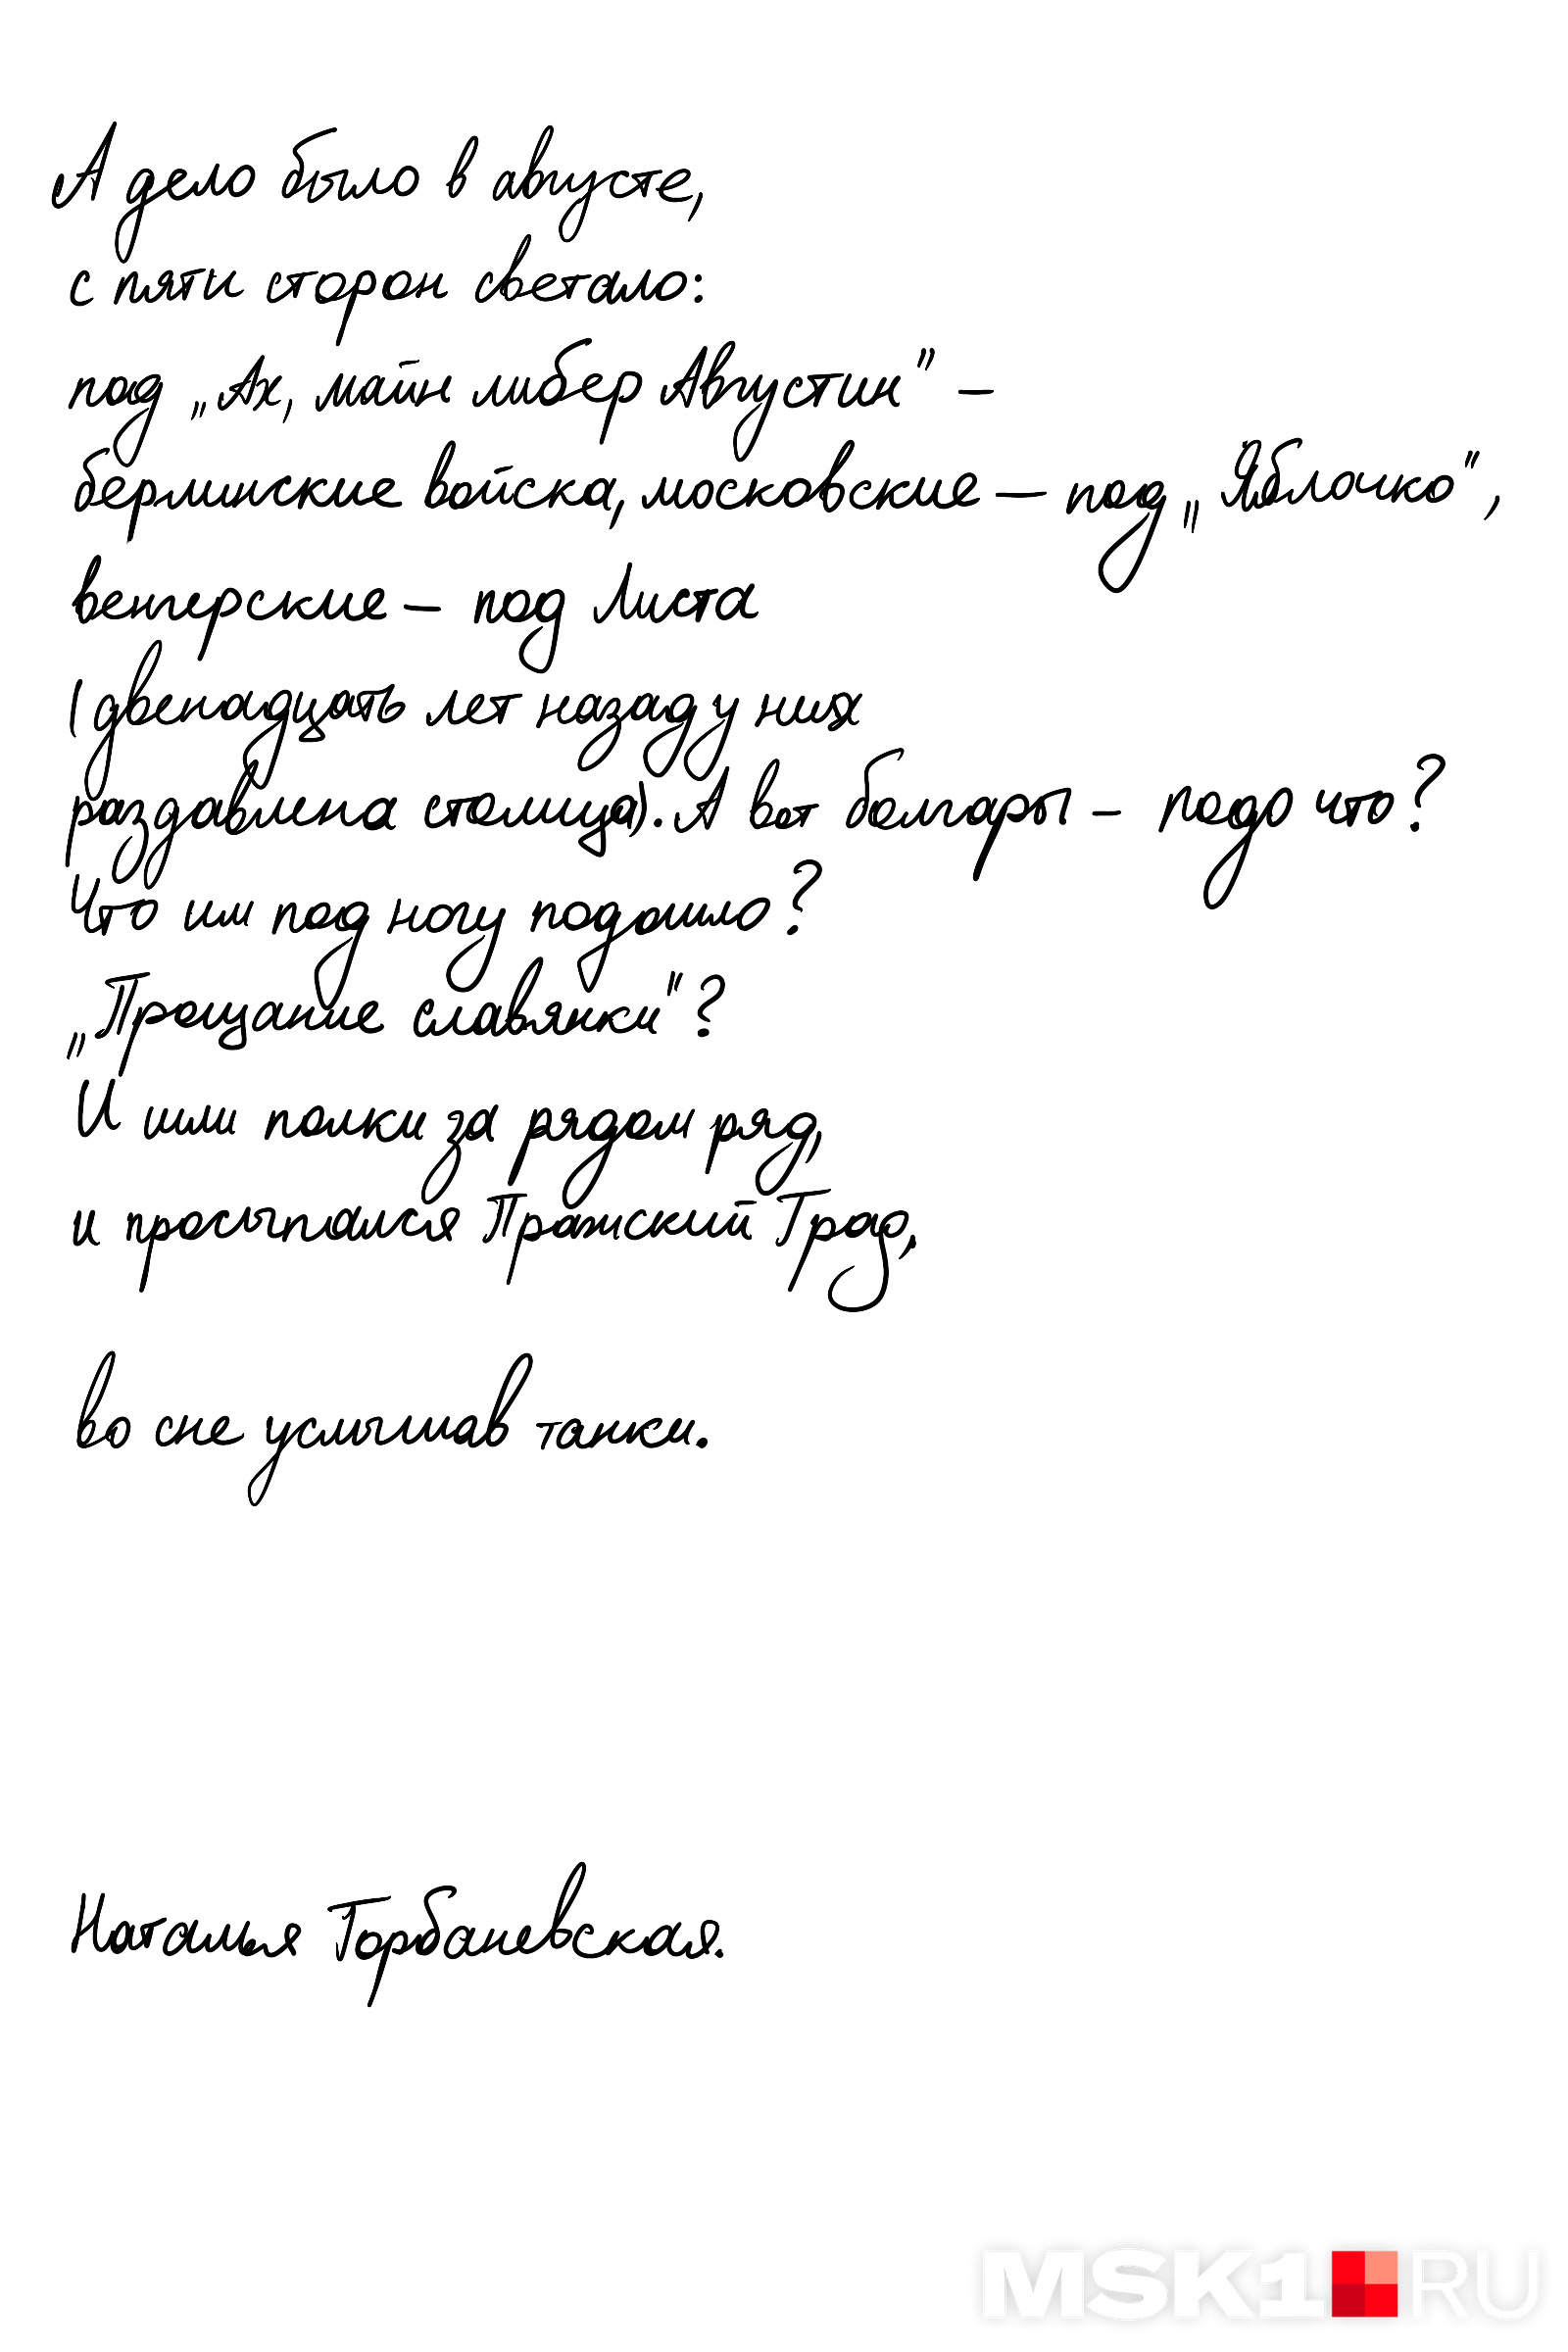 А дело было в августе,
с пяти сторон светало:
под „Ах, майн либер Августин" –
берлинские войска, московские – под „Яблочко",
венгерские – под Листа
(двенадцать лет назад у них
раздавлена столица). А вот болгары – подо что?
Что им под ногу подошло?
„Прощание славянки"?
И шли полки за рядом ряд,
и просыпался Пражский Град,
во сне услышав танки.
Наталья Горбаневская.
MSK1.RU